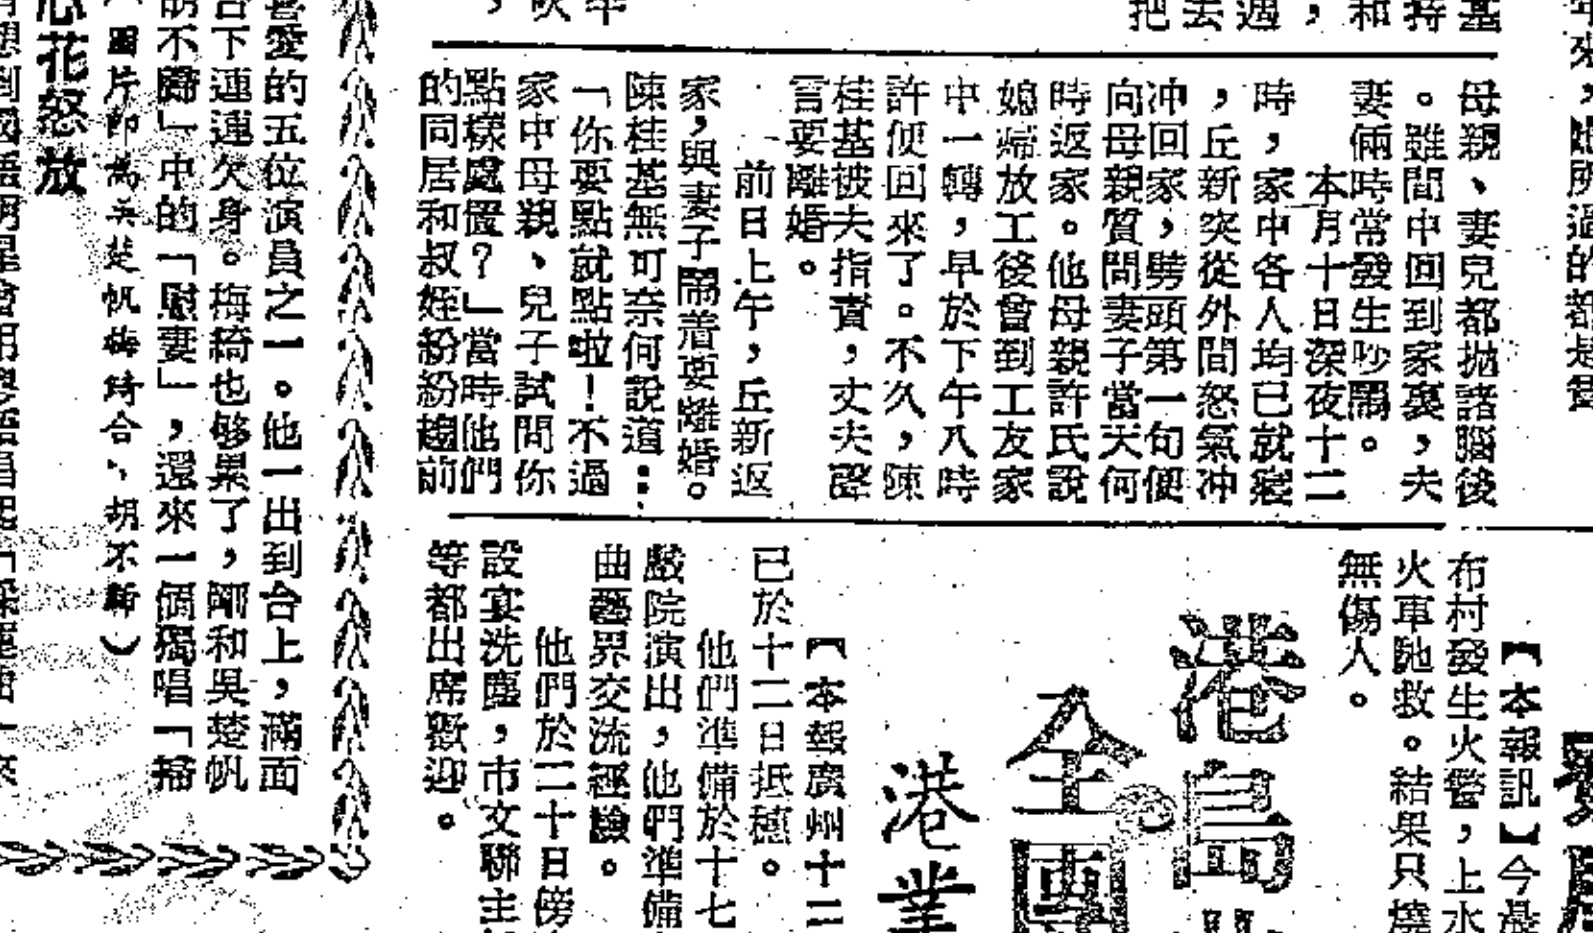 基
持
和
，
遇
去
把
年來，
母親、妻兒都拋諸腦後
。雖間中回到家裏，夫
妻倆時常發生吵鬧。
本月十日深夜十二
時，家中各人均已就寢
，丘新突從外間怒氣沖
沖回家，劈頭第一句便
向母親質問妻子當天何
時返家。他母親許氏說
媳婦放工後曾到工友家
中一轉，早於下午八時
許便回來了。不久，陳
桂基被夫指責，丈夫聲
言要離婚。
前日上午，丘新返
家，與妻子鬧着要離婚。
陳桂基無可奈何說道：
「你要點就點啦！不過
家中母親、兒子試問你
點樣處置？」當時他們
的同居和叔姪紛紛趨前
【本報訊】今晨
布村發生火警，上水
火車馳救。結果只燒
無傷人。
港島
全團
港業
【本報廣州十二
已於十二日抵穗。
他們準備於十七
戲院演出，他們準備
曲藝界交流經驗。
他們於二十日傍
設宴洗塵，市文聯主
等都出席歡迎。
喜愛的五位演員之一。他一出到台上，滿面
台下連連欠身。梅綺也够累了，剛和吳楚帆
胡不歸」中的「慰妻」，還來一個獨唱「掃
（圖片即為吳楚帆梅綺合、胡不歸）
心花怒放